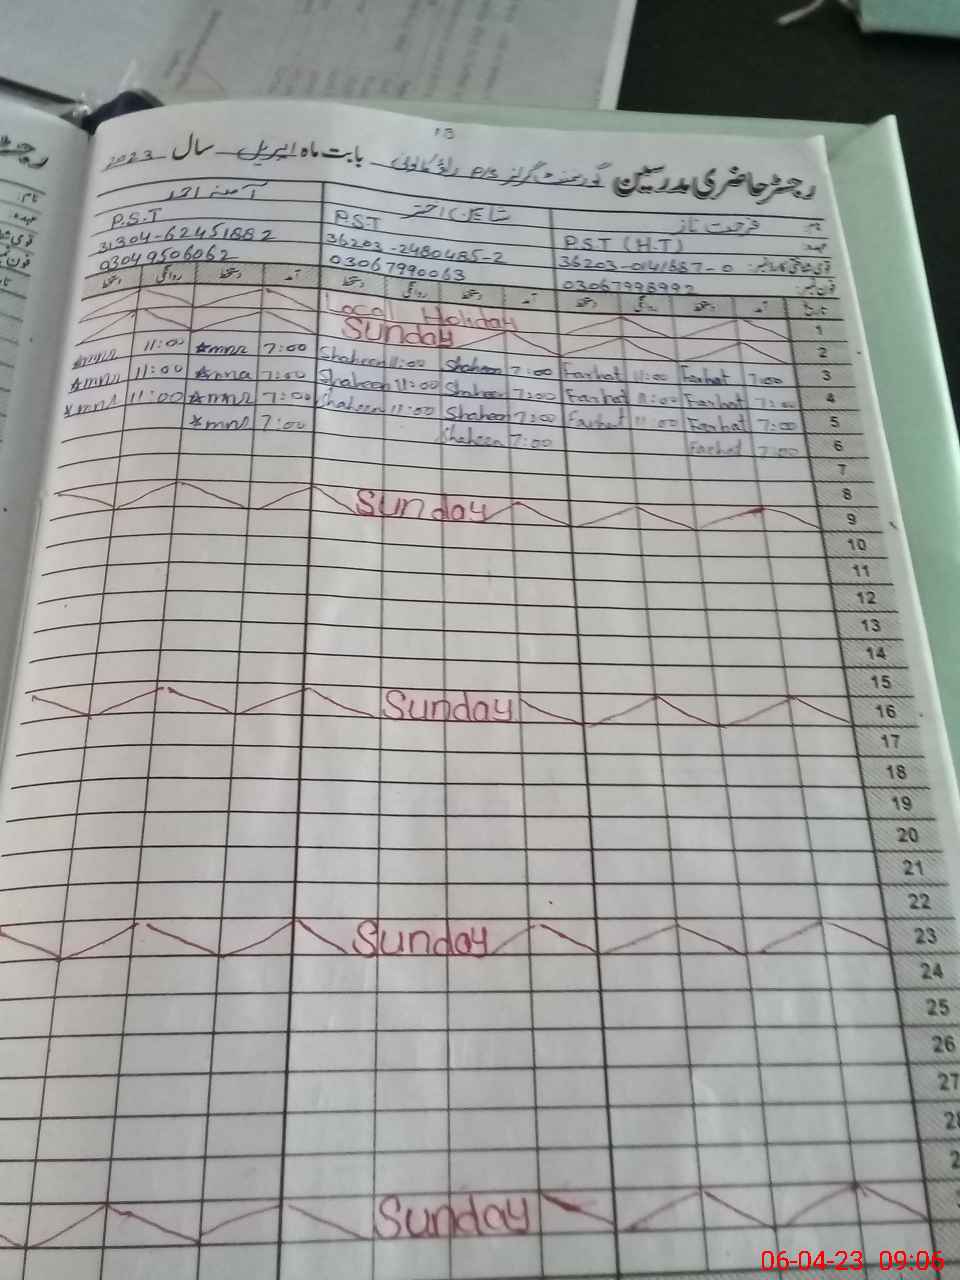 13
رجسٹر حاضری مدرسین گورنمنٹ گرلز P/S بابت ماہ اپریل سال 2023
نام فرحت ناز شاہین اختر آمنہ احمد
عہدہ P.S.T (H.T) P.S.T P.S.T
قومی شناختی کارڈ نمبر: 36203-0141687-0 36203-2480485-2 31304-6245188 2
فون نمبر: 03067998992 03067990063 03049506062
تاریخ آمد دستخط روانگی دستخط آمد دستخط روانگی دستخط آمد دستخط روانگی دستخط
Local Holiday 1
Sunday 2
11:00 7:00 Shaheen 11:00 Shaheen 7:00 Farhat 11:00 Farhat 7:00 3
11:00 Amna 7:00 Shaheen 11:00 Shaheen 7:00 Farhat 11:00 Farhat 7:00 4
11:00 7:00 Shaheen 11:00 Shaheen 7:00 Farhat 11:00 Farhat 7:00 5
7:00 Shaheen 7:00 Farhat 7:00 6
7
8
Sunday 9
10
11
12
13
14
15
Sunday 16
17
18
19
20
21
22
Sunday 23
24
25
26
27
Sunday
06-04-23 09:06